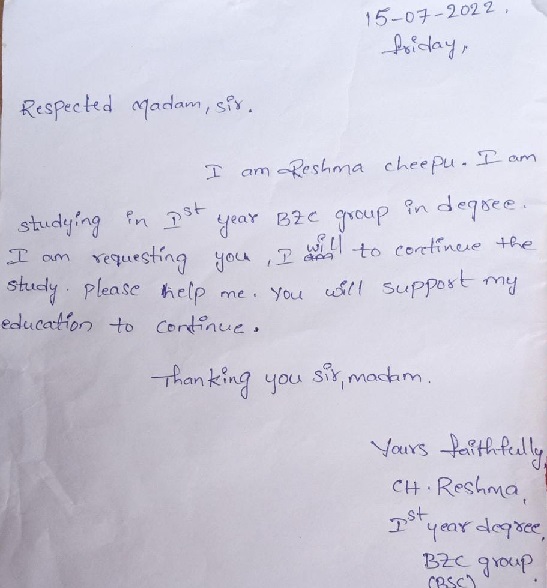 15-07-2022.
friday,
Respected Madam, sir.
I am Reshma cheepu. I am
studying in Ist year BZC group in degree.
I am requesting you, I will to continue the
study. please help me. You will support my
education to continue.
Thanking you sir, madam.
Yours faithfully,
CH. Reshma,
Ist year degree,
BZC group
(BSC)